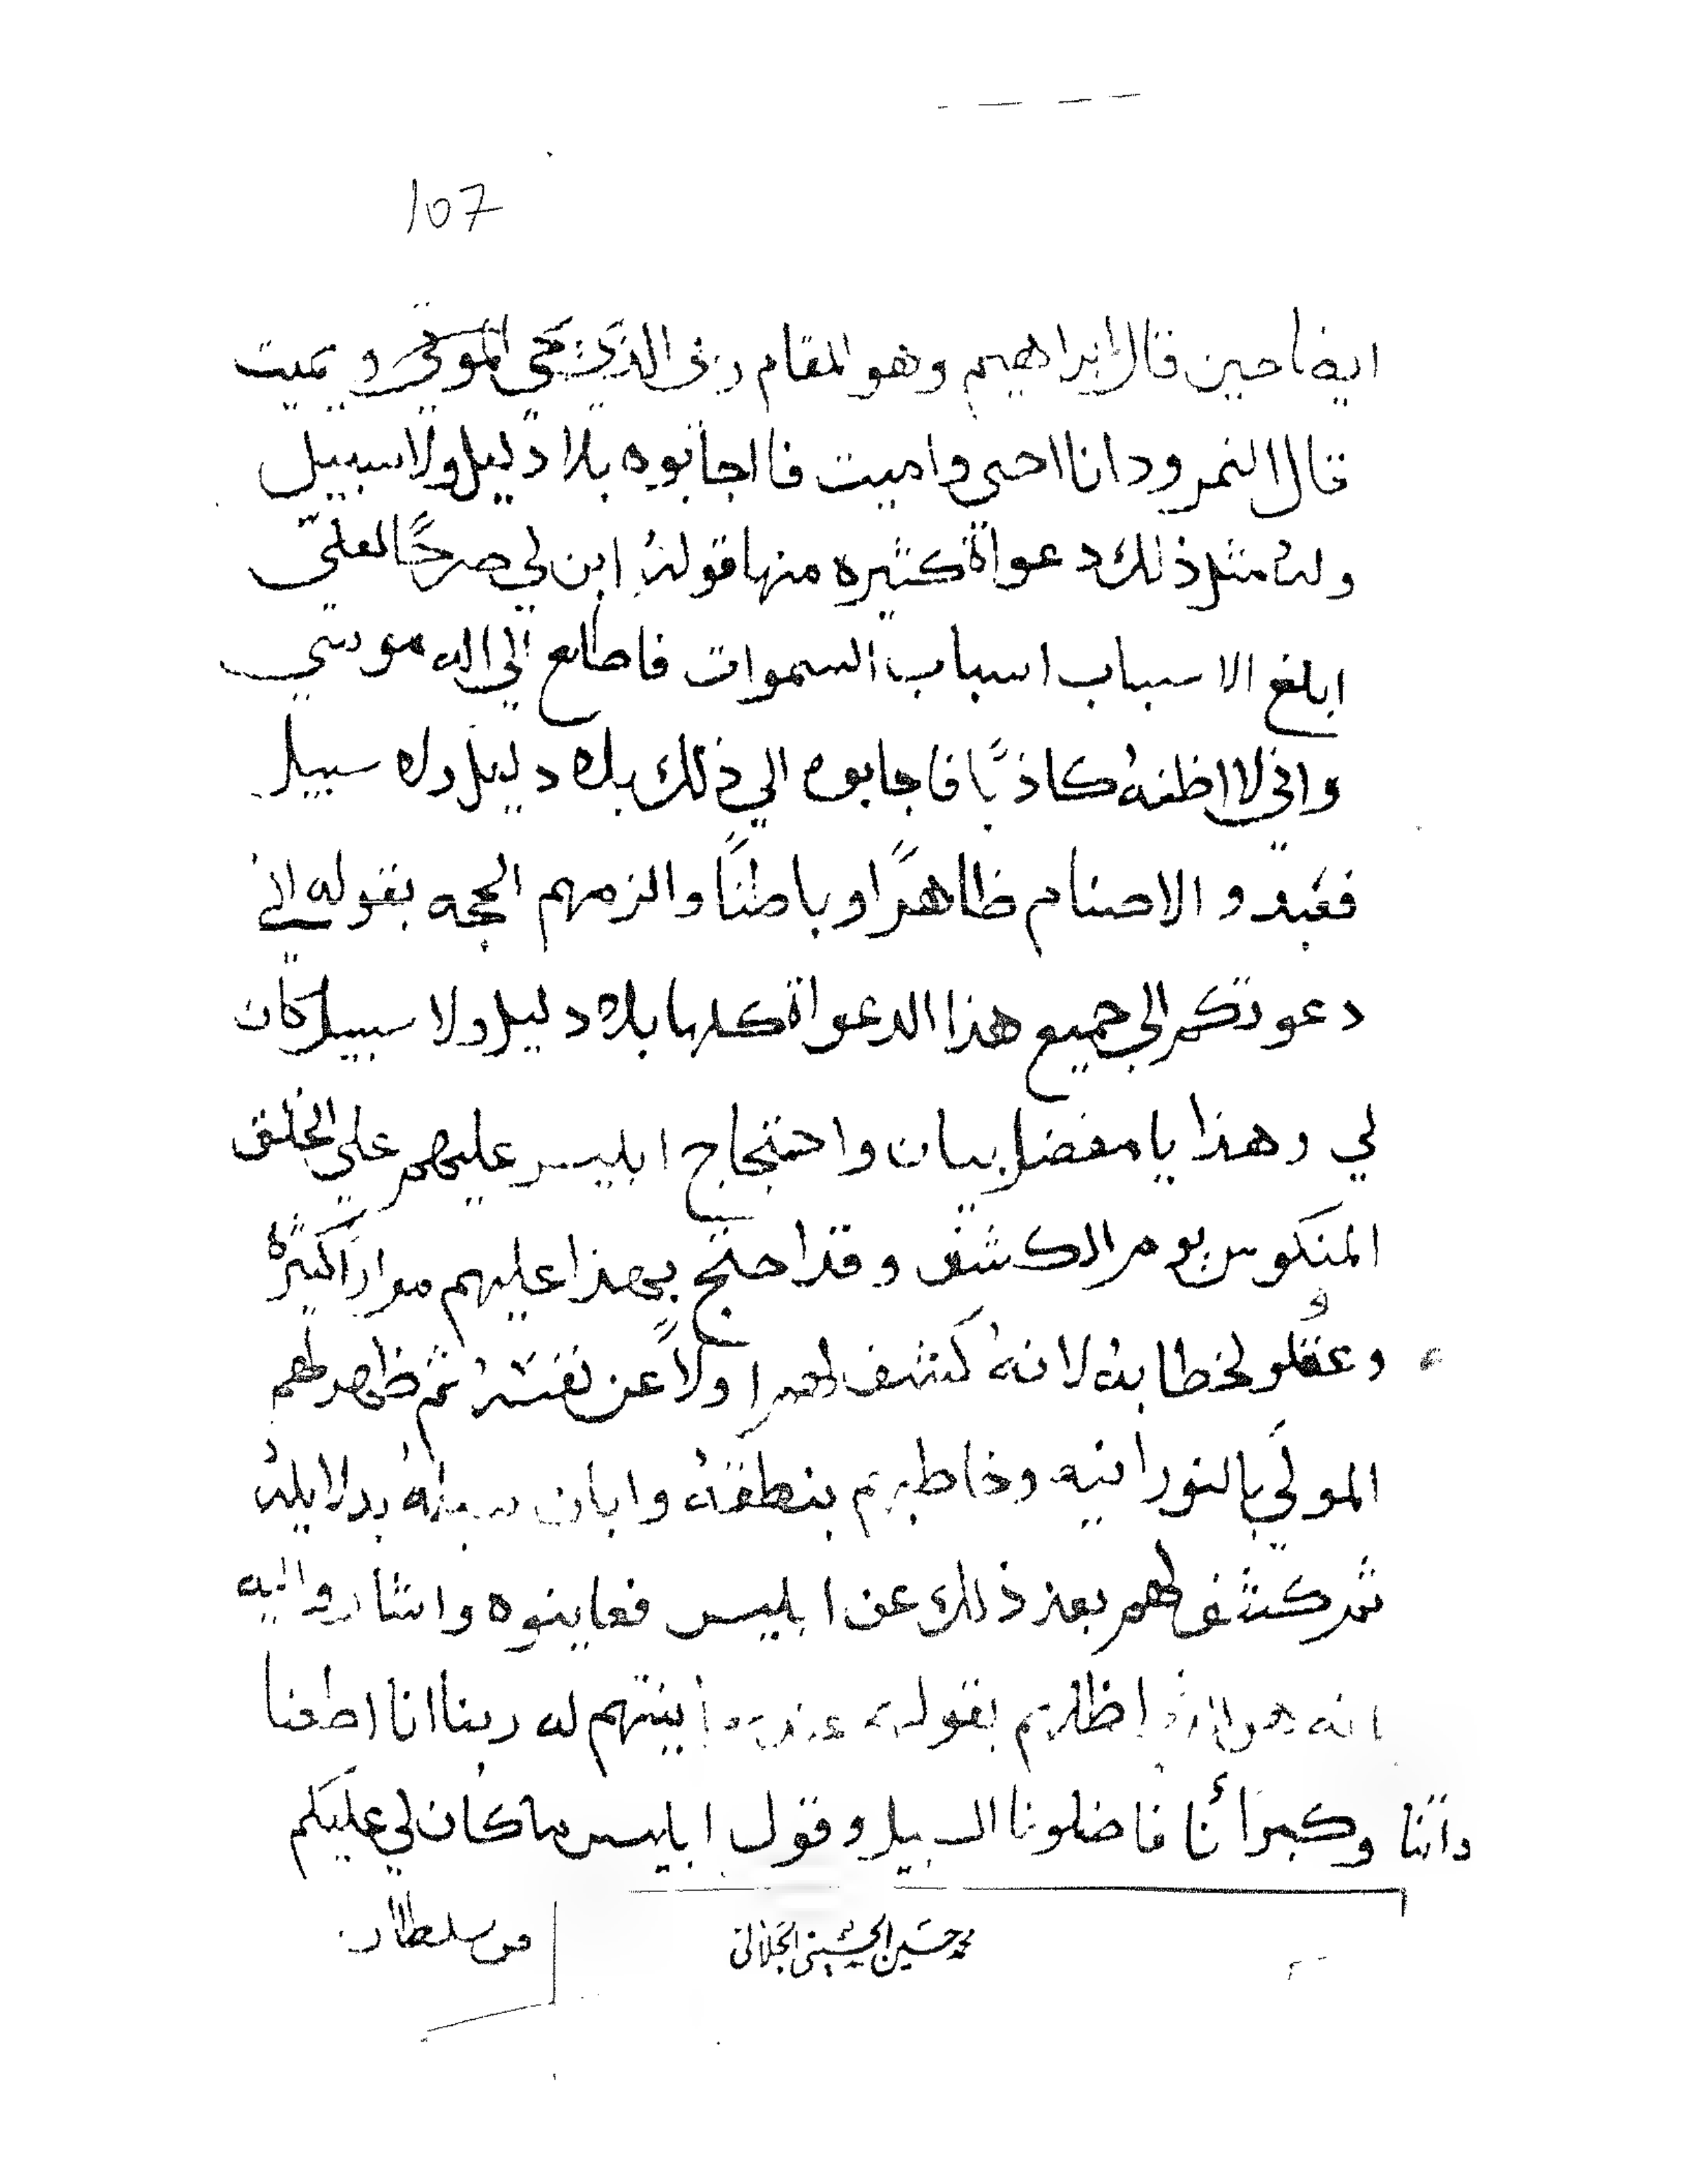 107
ايضا حين قال ابراهيم وهو المقام ربي الذي يحي الموتى ويميت
قال النمرود انا احيى واميت فا اجابوه بلا دليل ولا سبيل
وله مثل ذلك دعواة كثيره منها قوله ابن لي صرحًا لعلي
ابلغ الاسباب اسباب السموات فاطلع الي اله موسي
واني لا اظنه كاذبًا فاجابوه الي ذلك بلا دليل ولا سبيل
فعبدو الاصنام ظاهرًا وباطنًا والزمهم الحجه بقوله اني
دعوتكم الي جميع هذا الدعواة كلها بلا دليل ولا سبيل كان
لي وهذا يا مفضل بيان واحتجاج ابليس عليهم علي الخلق
المنكوس يوم الكشف وقد احتج بهذا عليهم مرارًا كثيرة
وعقلو لخطابه لانه كشف لهم اولًا عن نفسه ثم ظهر لهم
المولي بالنورانيه وخاطبهم بنطقه وابان سبله بدلايله
ثم كشف لهم بعد ذلك عن ابليس فعاينوه واشارو اليه
انه هو الذي اظلهم بقولهم عند رؤيتهم له ربنا انا اطعنا
داتنا وكبرأنا فاضلونا السبيل وقول ابليس ما كان لي عليكم
من سلطان
محمد حسين الحسيني الجلالي